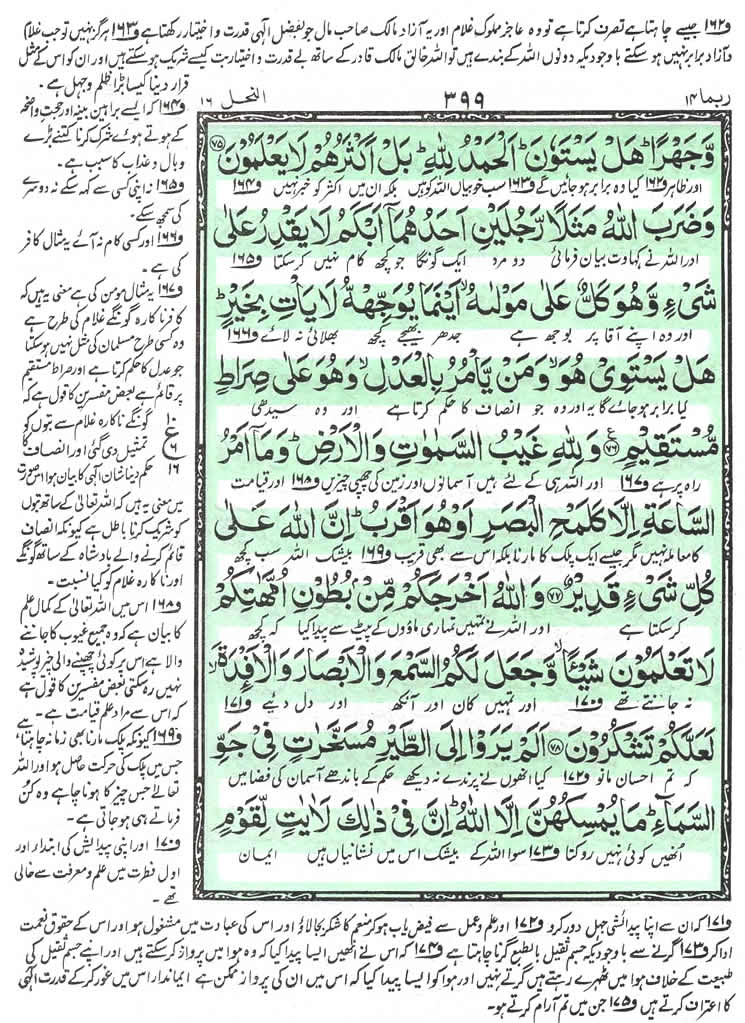 و۱۶۲ جیسے چاہتا ہے تصرف کرتا ہے تو وہ عاجز مملوک غلام اور یہ آزاد مالک صاحب مال جو بفضل الٰہی قدرت و اختیار رکھتا ہے و۱۶۳ ہرگز نہیں تو جب غلام
و آزاد برابر نہیں ہو سکتے باوجودیکہ دونوں اللہ کے بندے ہیں تو اللہ خالق مالک قادر کے ساتھ بے قدرت و اختیار بت کیسے شریک ہو سکتے ہیں اور ان کو اس کے مثل
قرار دینا کیسا بڑا ظلم و جہل ہے۔
ربما ۱۴
۳۹۹
النحل ۱۶
وَّجَهْرًا ؕ هَلْ يَسْتَوٗنَ ؕ اَلْحَمْدُ لِلّٰهِ ؕ بَلْ اَكْثَرُهُمْ لَا يَعْلَمُوْنَ ﴿۷۵﴾
اور ظاہر و۱۶۲ کیا وہ برابر ہو جائیں گے و۱۶۳ سب خوبیاں اللہ کو ہیں بلکہ ان میں اکثر کو خبر نہیں و۱۶۴
وَضَرَبَ اللّٰهُ مَثَلًا رَّجُلَيْنِ اَحَدُهُمَاۤ اَبْكَمُ لَا يَقْدِرُ عَلٰى
اور اللہ نے کہاوت بیان فرمائی دو مرد ایک گونگا جو کچھ کام نہیں کر سکتا و۱۶۵
شَىْءٍ وَّهُوَ كَلٌّ عَلٰى مَوْلٰىهُ ۙ اَيْنَمَا يُوَجِّهْهُّ لَا يَاْتِ بِخَيْرٍ ؕ
اور وہ اپنے آقا پر بوجھ ہے جدھر بھیجے کچھ بھلائی نہ لائے و۱۶۶
هَلْ يَسْتَوِىْ هُوَ ۙ وَمَنْ يَّاْمُرُ بِالْعَدْلِ ۙ وَهُوَ عَلٰى صِرَاطٍ
کیا برابر ہو جائے گا یہ اور وہ جو انصاف کا حکم کرتا ہے اور وہ سیدھی
مُّسْتَقِيْمٍ ﴿۷۶﴾ وَلِلّٰهِ غَيْبُ السَّمٰوٰتِ وَالْاَرْضِ ؕ وَمَاۤ اَمْرُ
راہ پر ہے و۱۶۷ اور اللہ ہی کے لئے ہیں آسمانوں اور زمین کی چھپی چیزیں و۱۶۸ اور قیامت
السَّاعَةِ اِلَّا كَلَمْحِ الْبَصَرِ اَوْ هُوَ اَقْرَبُ ؕ اِنَّ اللّٰهَ عَلٰى
کا معاملہ نہیں مگر جیسے ایک پلک کا مارنا بلکہ اس سے بھی قریب و۱۶۹ بیشک اللہ سب کچھ
كُلِّ شَىْءٍ قَدِيْرٌ ﴿۷۷﴾ وَاللّٰهُ اَخْرَجَكُمْ مِّنْۢ بُطُوْنِ اُمَّهٰتِكُمْ
کر سکتا ہے اور اللہ نے تمہیں تمہاری ماؤں کے پیٹ سے پیدا کیا کہ کچھ
لَا تَعْلَمُوْنَ شَيْـًٔا ۙ وَّجَعَلَ لَكُمُ السَّمْعَ وَالْاَبْصَارَ وَالْاَفْـِٕدَةَ ۙ
نہ جانتے تھے و۱۷۰ اور تمہیں کان اور آنکھ اور دل دیئے و۱۷۱
لَعَلَّكُمْ تَشْكُرُوْنَ ﴿۷۸﴾ اَلَمْ يَرَوْا اِلَى الطَّيْرِ مُسَخَّرٰتٍ فِىْ جَوِّ
کہ تم احسان مانو و۱۷۲ کیا انھوں نے پرندے نہ دیکھے حکم کے باندھے آسمان کی فضا میں
السَّمَآءِ ؕ مَا يُمْسِكُهُنَّ اِلَّا اللّٰهُ ؕ اِنَّ فِىْ ذٰلِكَ لَاٰيٰتٍ لِّقَوْمٍ
انھیں کوئی نہیں روکتا و۱۷۳ سوا اللہ کے بیشک اس میں نشانیاں ہیں ایمان
و۱۶۴ کہ ایسے براہین بینہ اور حجت واضحہ
کے ہوتے ہوئے شرک کرنا کتنے بڑے
وبال و عذاب کا سبب ہے۔
و۱۶۵ نہ اپنی کسی سے کہہ سکے نہ دوسرے
کی سمجھ سکے۔
و۱۶۶ اور کسی کام نہ آئے یہ مثال کافر
کی ہے۔
و۱۶۷ یہ مثال مومن کی ہے معنی یہ ہیں کہ
کافر ناکارہ گونگے غلام کی طرح ہے
وہ کسی طرح مسلمان کی مثل نہیں ہو سکتا
جو عدل کا حکم کرتا ہے اور صراط مستقیم
پر قائم ہے بعض مفسرین کا قول ہے کہ
گونگے ناکارہ غلام سے بتوں کو
تمثیل دی گئی اور انصاف کا
حکم دینا شان الٰہی کا بیان ہوا اس صورت
میں معنی یہ ہیں کہ اللہ تعالیٰ کے ساتھ بتوں
کو شریک کرنا باطل ہے کیونکہ انصاف
قائم کرنے والے بادشاہ کے ساتھ گونگے
اور ناکارہ غلام کو کیا نسبت۔
و۱۶۸ اس میں اللہ تعالیٰ کے کمال علم
کا بیان ہے کہ وہ جمیع غیوب کا جاننے
والا ہے اس پر کوئی چھپنے والی چیز پوشیدہ
نہیں رہ سکتی بعض مفسرین کا قول ہے
کہ اس سے مراد علم قیامت ہے۔
و۱۶۹ کیونکہ پلک مارنا بھی زمانہ چاہتا ہے
جس میں پلک کی حرکت حاصل ہو اور اللہ
تعالیٰ جس چیز کا ہونا چاہے وہ کن
فرماتے ہی ہو جاتی ہے۔
و۱۷۰ اور اپنی پیدائش کی ابتدا اور
اول فطرت میں علم و معرفت سے خالی
تھے۔
ع
۱۰
۶
۱۶
و۱۷۱ کہ ان سے اپنا پیدائشی جہل دور کرو و۱۷۲ اور علم و عمل سے فیض یاب ہو کر منعم کا شکر بجا لاؤ اور اس کی عبادت میں مشغول ہو اور اس کے حقوق نعمت
ادا کرو و۱۷۳ گرنے سے باوجودیکہ جسم ثقیل بالطبع گرنا چاہتا ہے و۱۷۴ کہ اس نے انھیں ایسا پیدا کیا کہ وہ ہوا میں پرواز کر سکتے ہیں اور اپنے جسم ثقیل کی
طبیعت کے خلاف ہوا میں ٹھہرے رہتے ہیں گرتے نہیں اور ہوا کو ایسا پیدا کیا کہ اس میں ان کی پرواز ممکن ہے ایماندار اس میں غور کر کے قدرت الٰہی
کا اعتراف کرتے ہیں و۱۷۵ جن میں تم آرام کرتے ہو۔